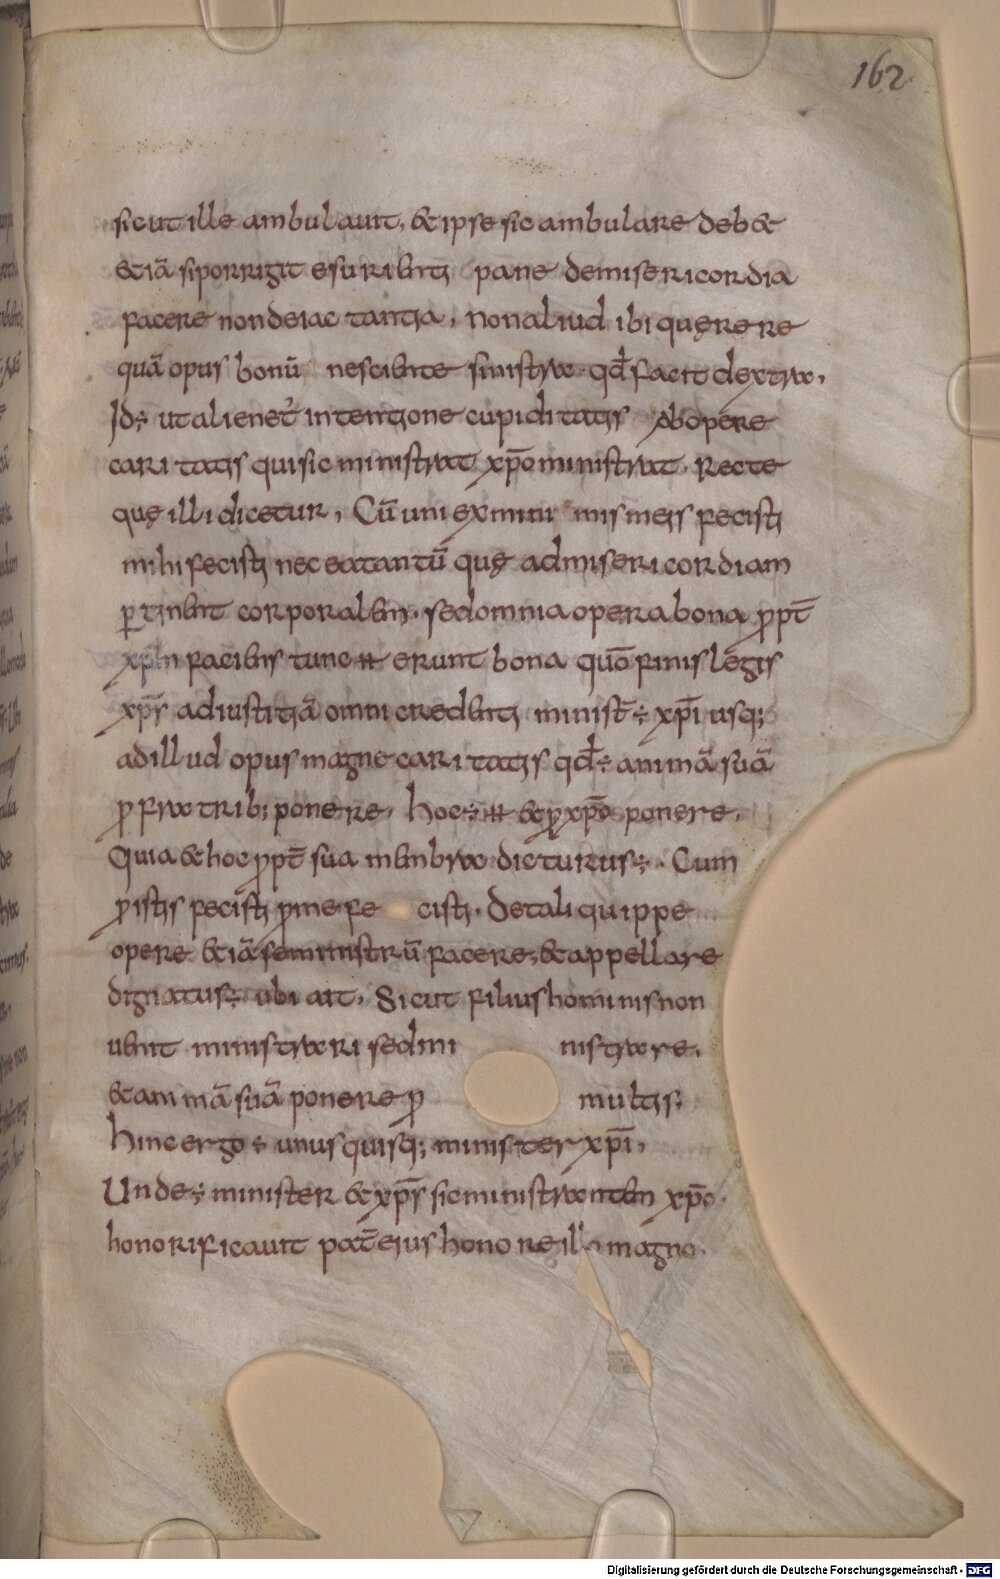 162
sicut ille ambulauit, & ipse sic ambulare deb&
&iā si porrigit esurienti pane de misericordia
facere non de iactantia, non aliud ibi quęrere
quā opus bonū nesciente sinistra qđ facit dextra,
Id÷ ut alienet' intentione cupiditatis ab opere
caritatis qui sic ministrat xp̄o ministrat. Recte
quę illi dicetur, Cū uni ex minimis meis fecisti
mihi fecisti nec ea tantū quę ad misericordiam
ꝑtinent corporalem. sed omnia opera bona ꝓpt̄
xp̄m faciens tunc ħ erunt bona quō finis legis
xp̄s ad iustitiā omni credenti minist̄÷ xp̄i usq;
ad illud opus magne caritatis qđ÷ animā suā
ꝓ fratrib; ponere. hoc÷ ħ & ꝓ xp̄o ponere.
Quia & hoc ꝓpt̄ sua membra dicturus÷. Cum
ꝓ istis fecisti ꝓ me fecisti. De tali quippe
opere &iā se ministrū facere, & appellare
dignatus÷ ubi ait, Sicut filius hominis non
uenit ministrari sed ministrare.
& animā suā ponere ꝓ multis.
Hinc ergo ÷ unusquisq; minister xp̄i,
Unde÷ minister & xp̄s sic ministrantem xp̄o
honorificauit pat̄ eius honore illo magno.
Digitalisierung gefördert durch die Deutsche Forschungsgemeinschaft - DFG